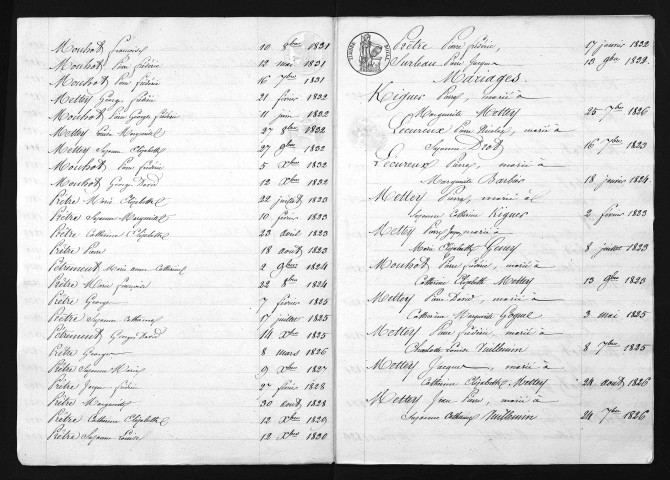 Mouhot François 10 8bre 1821
Mouhot Pierre Frédéric 12 mai 1831
Mouhot Pierre Frédéric 16 7bre 1831
Mettey George Frédéric 21 février 1832
Mouhot Pierre George Frédéric 11 juin 1832
Mettey Louise Marguerite 27 8bre 1832
Mettey Suzanne Elizabeth 27 9bre 1832
Mouhot Pierre Frédéric 5 Xbre 1832
Mouhot George David 12 Xbre 1822
Prêtre Marie Elizabeth 22 juillet 1823
Prêtre Suzanne Marguerite 10 février 1823
Prêtre Catherine Elizabeth 23 avril 1823
Prêtre Pierre 18 août 1823
Petremont Marie anne Catherine 2 9bre 1824
Prêtre Marie françoise 22 8bre 1824
Prêtre George 7 février 1825
Prêtre Suzanne Catherine 17 juillet 1825
Petremont George David 14 Xbre 1825
Prêtre George 8 mars 1826
Prêtre Suzanne Marie 9 Xbre 1827
Prêtre Jacque Frédéric 27 février 1828
Prêtre Marguerite 30 août 1828
Prêtre Catherine Elizabeth 12 Xbre 1829
Prêtre Suzanne Louise 12 Xbre 1830
Prêtre Pierre Frédéric, 17 janvier 1832
Surleau Pierre Jacque 13 9bre 1832
Mariages.
Kiguer Pierre, marié à
Marguerite Mettey 25 7bre 1826
Lecureux Pierre Nicolas, marié à
Suzanne Drot 16 7bre 1823
Lécureux Pierre, marié à
Marguerite Barbier 18 janvier 1824
Mettey Pierre, marié à
Suzanne Catherine Kiguer 2 février 1823
Mettey Pierre Jaque marié à
Marie Elizabeth 8 juillet 1823
Mouhot Pierre Frédéric, marié à
Catherine Elizabeth Mettey 13 9bre 1823
Mettey Pierre David, marié à
Catherine Marguerite 3 mai 1825
Mettey Pierre Frédéric marié à
Charlotte Louise Vuillemin 8 7bre 1825
Mettey Jacque, marié à
Catherine Elizabeth Mettey 24 août 1826
Mettey Jean Pierre, marié à
Suzanne Catherine Vuillemin 24 7bre 1826